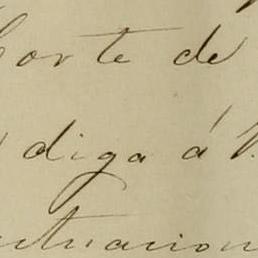 Corte de
diga á V.
ctuacion